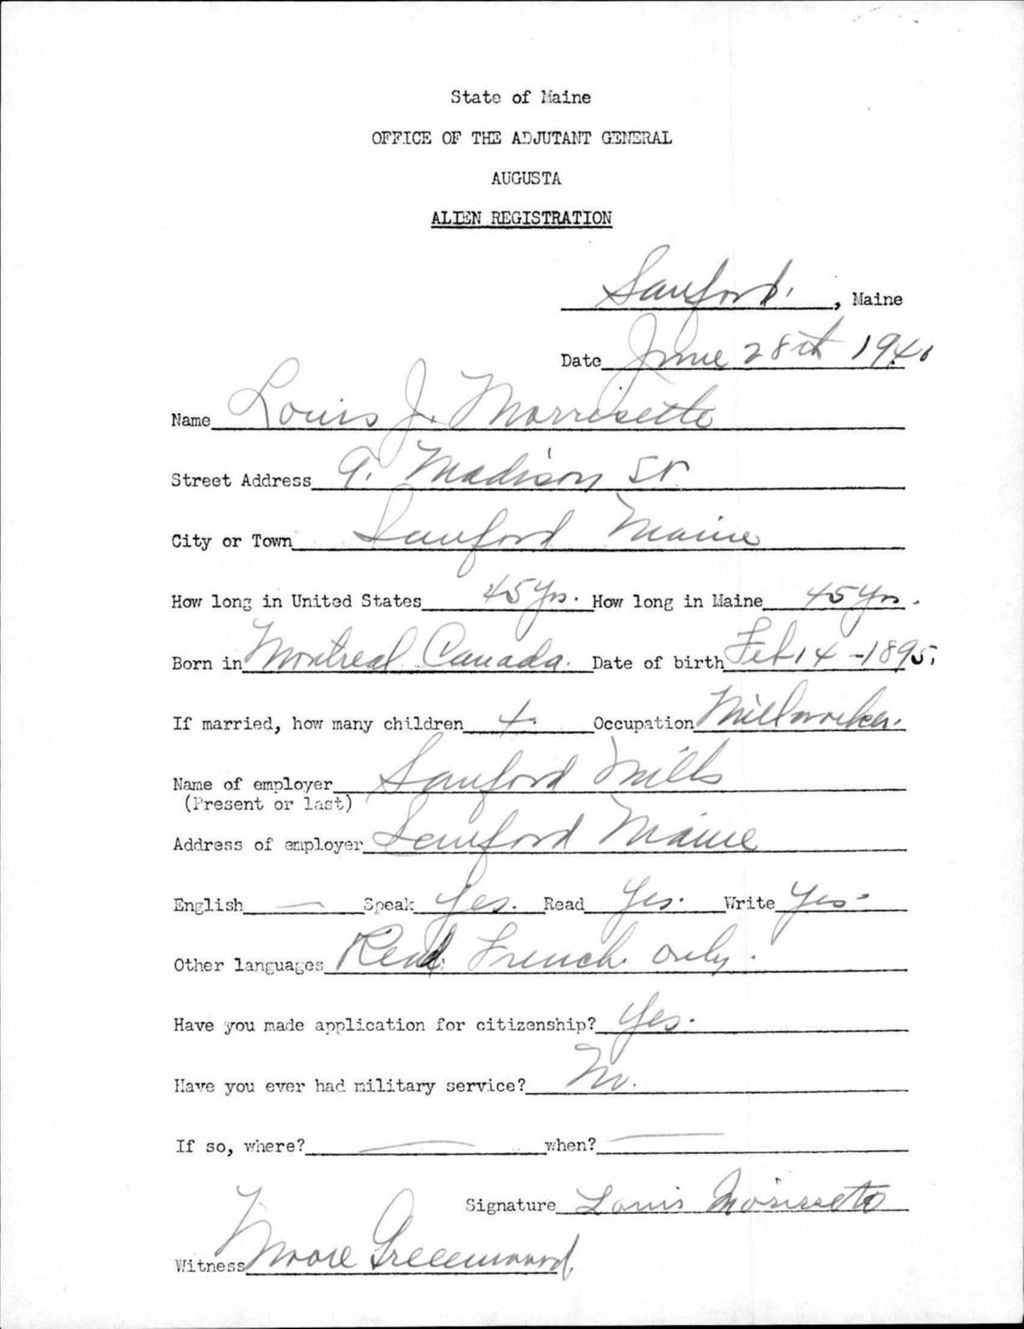 State of Maine
OFFICE OF THE ADJUTANT GENERAL
AUGUSTA
ALIEN REGISTRATION
Sanford, Maine
Date June 28th 1940
Name Louis J. Morrisette
Street Address 9. Madison St
City or Town Sanford Maine
How long in United States 45 yrs. How long in Maine 45 yrs.
Born in Montreal Canada. Date of birth Feb 14 - 1895.
If married, how many children 4. Occupation Millworker.
Name of employer Sanford Mills
(Present or last)
Address of employer Sanford Maine
English — Speak Yes. Read Yes. Write Yes -
Other languages Read. French. only.
Have you made application for citizenship? Yes.
Have you ever had military service? No.
If so, where? — when? —
Signature Louis
Witness Greenwood